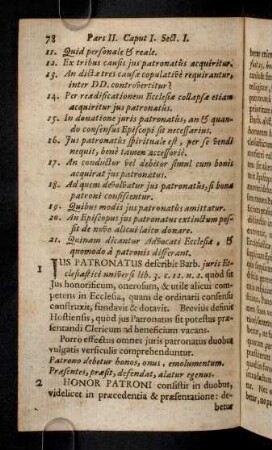 78 Pars II. Caput I. Sect. I.
11. Quid personale & reale.
12. Ex tribus causis jus patronatûs acquiritur.
13. An dictæ tres causæ copulativè requirantur,
inter DD. controvertitur?
14. Per reædificationem Ecclesiæ collapsæ etiam
acquiritur jus patronatus.
15. In donatione juris patronatûs, an &
quando consensus Episcopi sit necessarius.
16. Jus patronatûs spirituale est, per se vendi
nequit, benè tamen accessoriè.
17. An conductor vel debitor simul cum bonis
acquirat jus patronatus.
18. Ad quem devolvatur jus patronatûs, si bona
patroni confiscentur.
19. Quibus modis jus patronatûs amittatur.
20. An Episcopus jus patronatus extinctum pos-
sit de novo alicui laico donare.
21. Quinam dicantur Advocati Ecclesiæ, &
quomodo à patronis differant.
1 JUS PATRONATUS describit Barb. juris Ec-
clesiastici universi lib. 3. c. 12. n. 2. quòd sit
Jus honorificum, onerosum, & utile alicui com-
petens in Ecclesia, quam de ordinarii consensu
construxit, fundavit & dotavit. Breviùs definit
Hostiensis, quòd jus Patronatus sit potestas præ-
sentandi Clericum ad beneficium vacans.
Porro effectus omnes juris patronatus duobus
vulgatis versiculis comprehenduntur.
Patrono debetur honos, onus, emolumentum.
Præsentet, præsit, defendat, alatur egenus.
2 HONOR PATRONI consistit in duobus,
videlicet in præcedentia & præsentatione: de-
betur